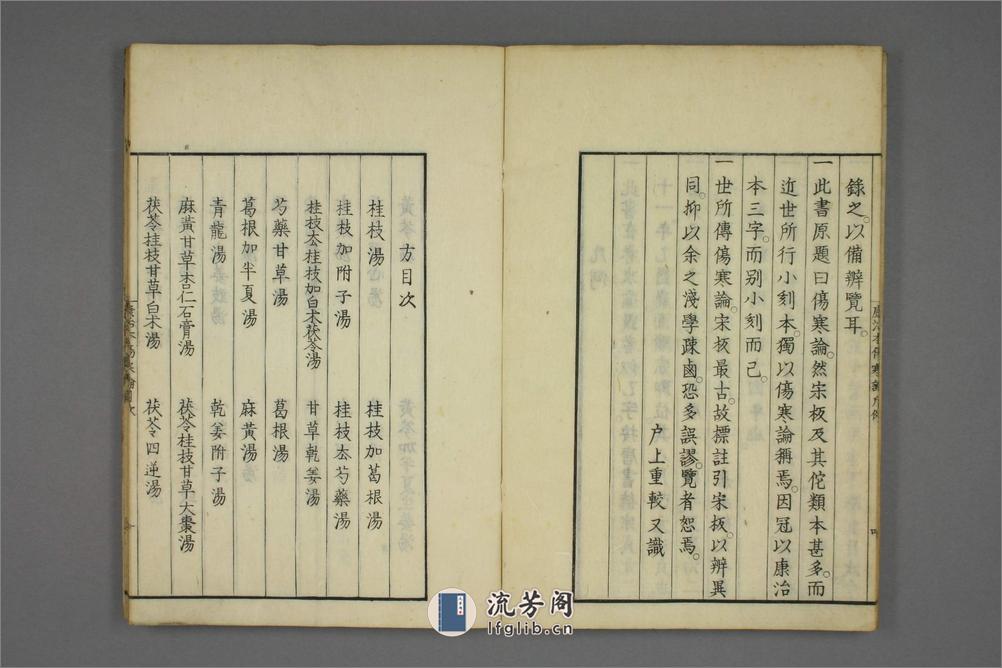 錄之。以備辨覽耳。
一此書原題曰傷寒論。然宋板及其佗類本甚多。而
近世所行小刻本。獨以傷寒論稱焉。因冠以康治
本三字。而别小刻而已。
一世所傳傷寒論。宋板最古。故標註引宋板。以辨異
同。抑以余之淺學疎鹵。恐多誤謬。覽者恕焉。
戶上重較又識
方目次
桂枝湯 桂枝加葛根湯
桂枝加附子湯 桂枝厺芍藥湯
桂枝厺桂枝加白朮茯苓湯 甘草乾姜湯
芍藥甘草湯 葛根湯
葛根加半夏湯 麻黃湯
青龍湯 乾姜附子湯
麻黃甘草杏仁石膏湯 茯苓桂枝甘草大棗湯
茯苓桂枝甘草白朮湯 茯苓四逆湯
流芳阁
lfglib.cn